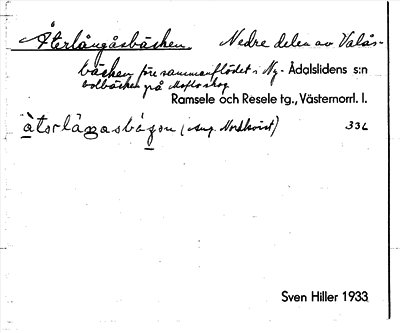 Återlångåsbäcken. Nedre delen av Valås-
bäcken före sammanflödet i Ny- Ådalslidens s:n
bolbäcken på Moflo skog
Ramsele och Resele tg., Västernorrl. l.
(aug. Nordkvist) 336
Sven Hiller 1933